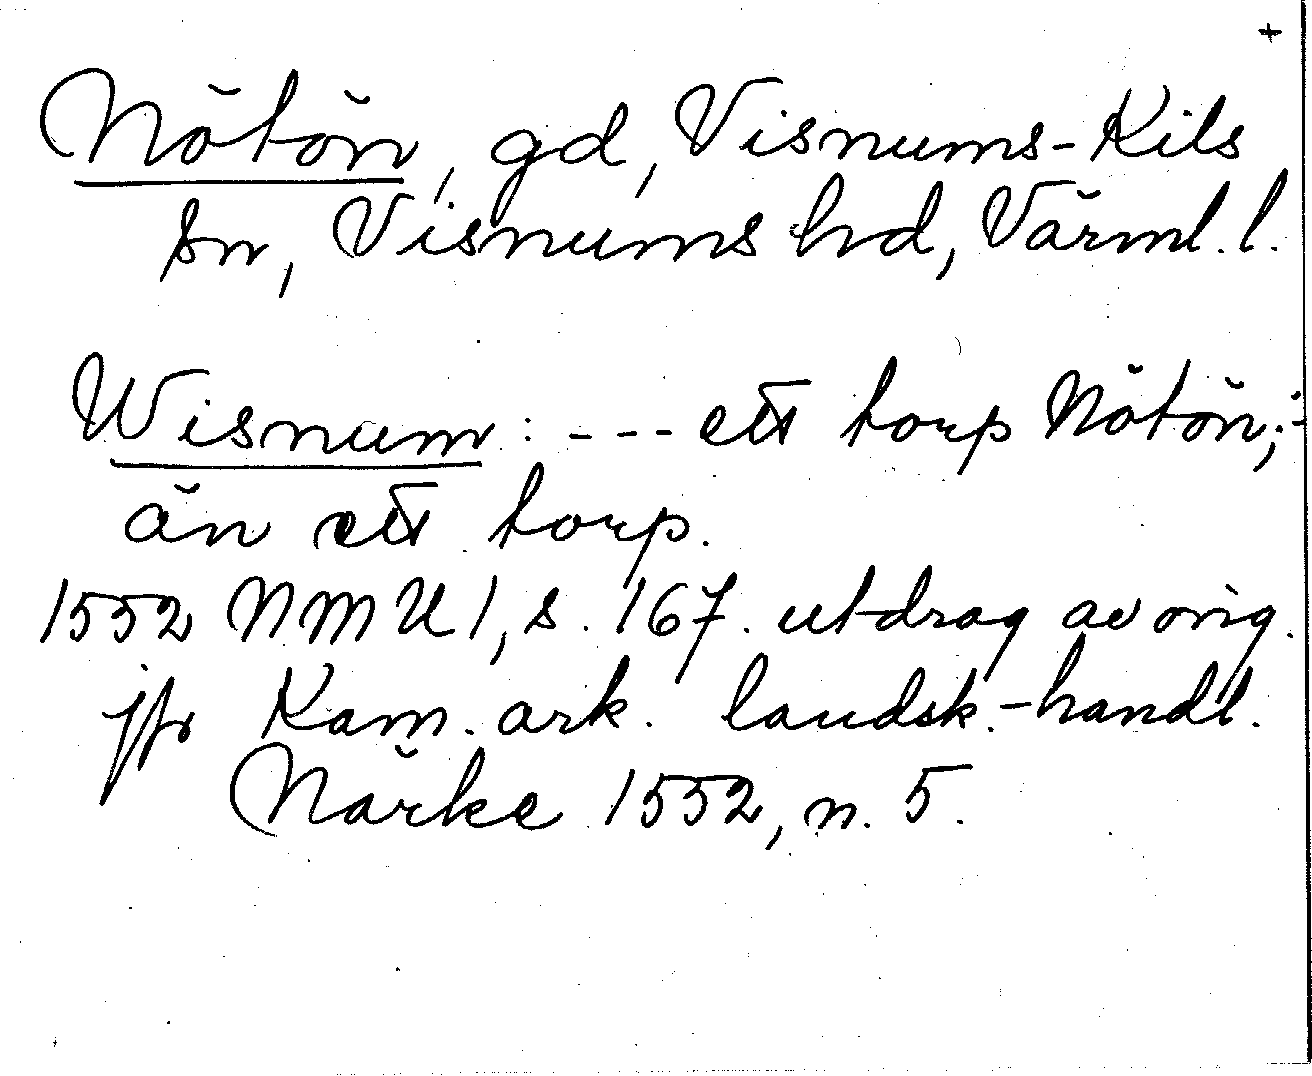 +
Nötön, gd, Visnums-Kils
sn, Visnums hd, Värml. l.
Wisnum : - - - ett torp Nötön;
än ett torp.
1552 NMU 1, s. 167. utdrag av orig.
jfr Kam. ark. landsk.-handl.
Närke 1552, n. 5.